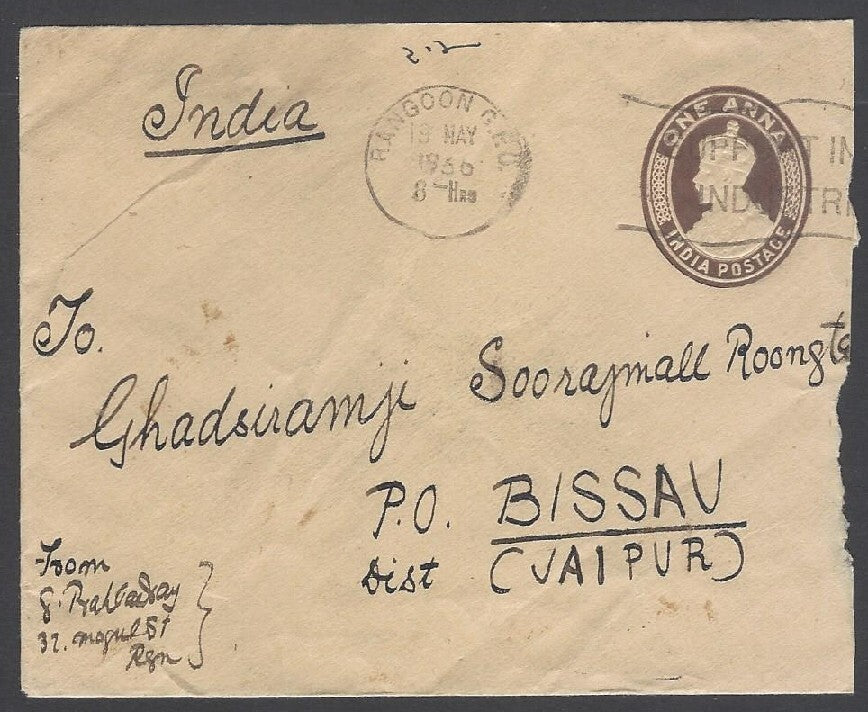 India
RANGOON G.P.O.
19 MAY
1936
8-HRS
ONE ANNA
INDIA POSTAGE
SUPPORT IN
INDUSTRI
To.
Ghadsiramji Soorajmall Roongta
P.O. BISSAU
Dist (JAIPUR)
From
37. mogul St
Rgn